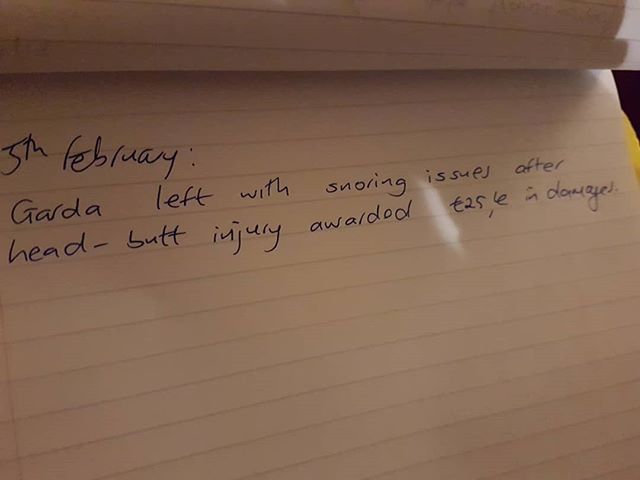 5th February:
Garda left with snoring issues after
head-butt injury awarded in damages.